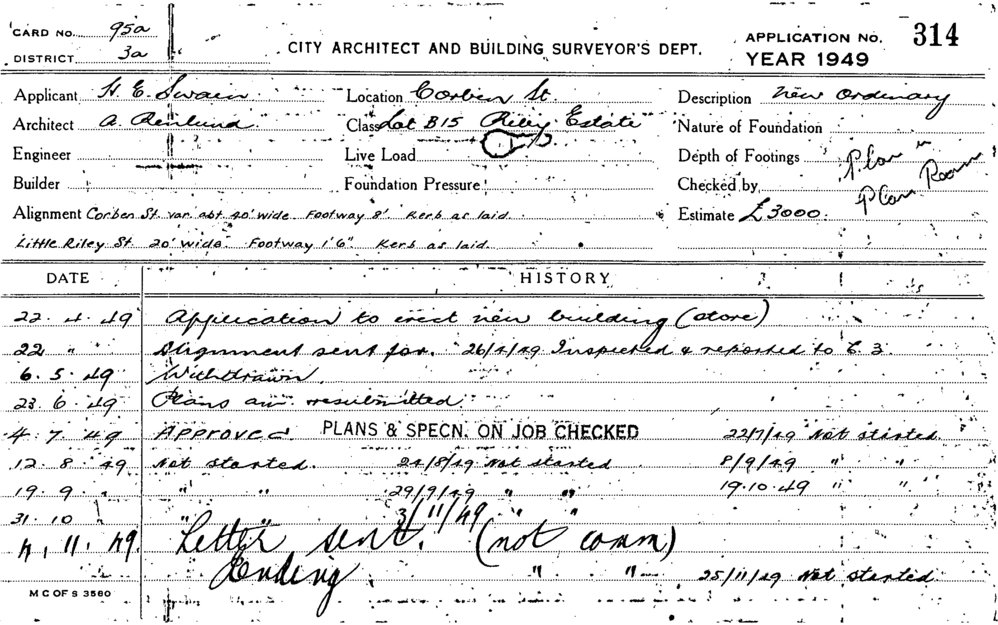 CARD NO. 95a
DISTRICT 3a
CITY ARCHITECT AND BUILDING SURVEYOR'S DEPT.
APPLICATION NO. 314
YEAR 1949
Applicant H. E. Swain Location Corben St. Description New Ordinary
Architect A. Class Lot B15 Riley Estate Nature of Foundation
Engineer Live Load Depth of Footings Plan in
Builder Foundation Pressure Checked by Plan Room
Alignment Corben St. var. abt. 40' wide. Footway 8' Kerb as laid. Estimate £3000.
Little Riley St. 20' wide. Footway 1'6" Kerb as laid.
DATE HISTORY
22. 4. 49 Application to erect new building (store)
22 " Alignment sent for. 26/4/49 Inspected & reported to C. 3.
6. 5. 49 Withdrawn.
23. 6. 49 Plans resubmitted.
4. 7. 49 APPROVED. PLANS & SPECN. ON JOB CHECKED 22/7/49 Not started.
12. 8. 49 Not started. 24/8/49 Not started 8/9/49 " "
19. 9. " " " 29/9/49 " " 19.10.49 " "
31. 10 " " 3/11/49 " "
4. 11. 49. Letter sent. (not comm)
Ending " " 25/11/49 Not started
M C OF S 3560